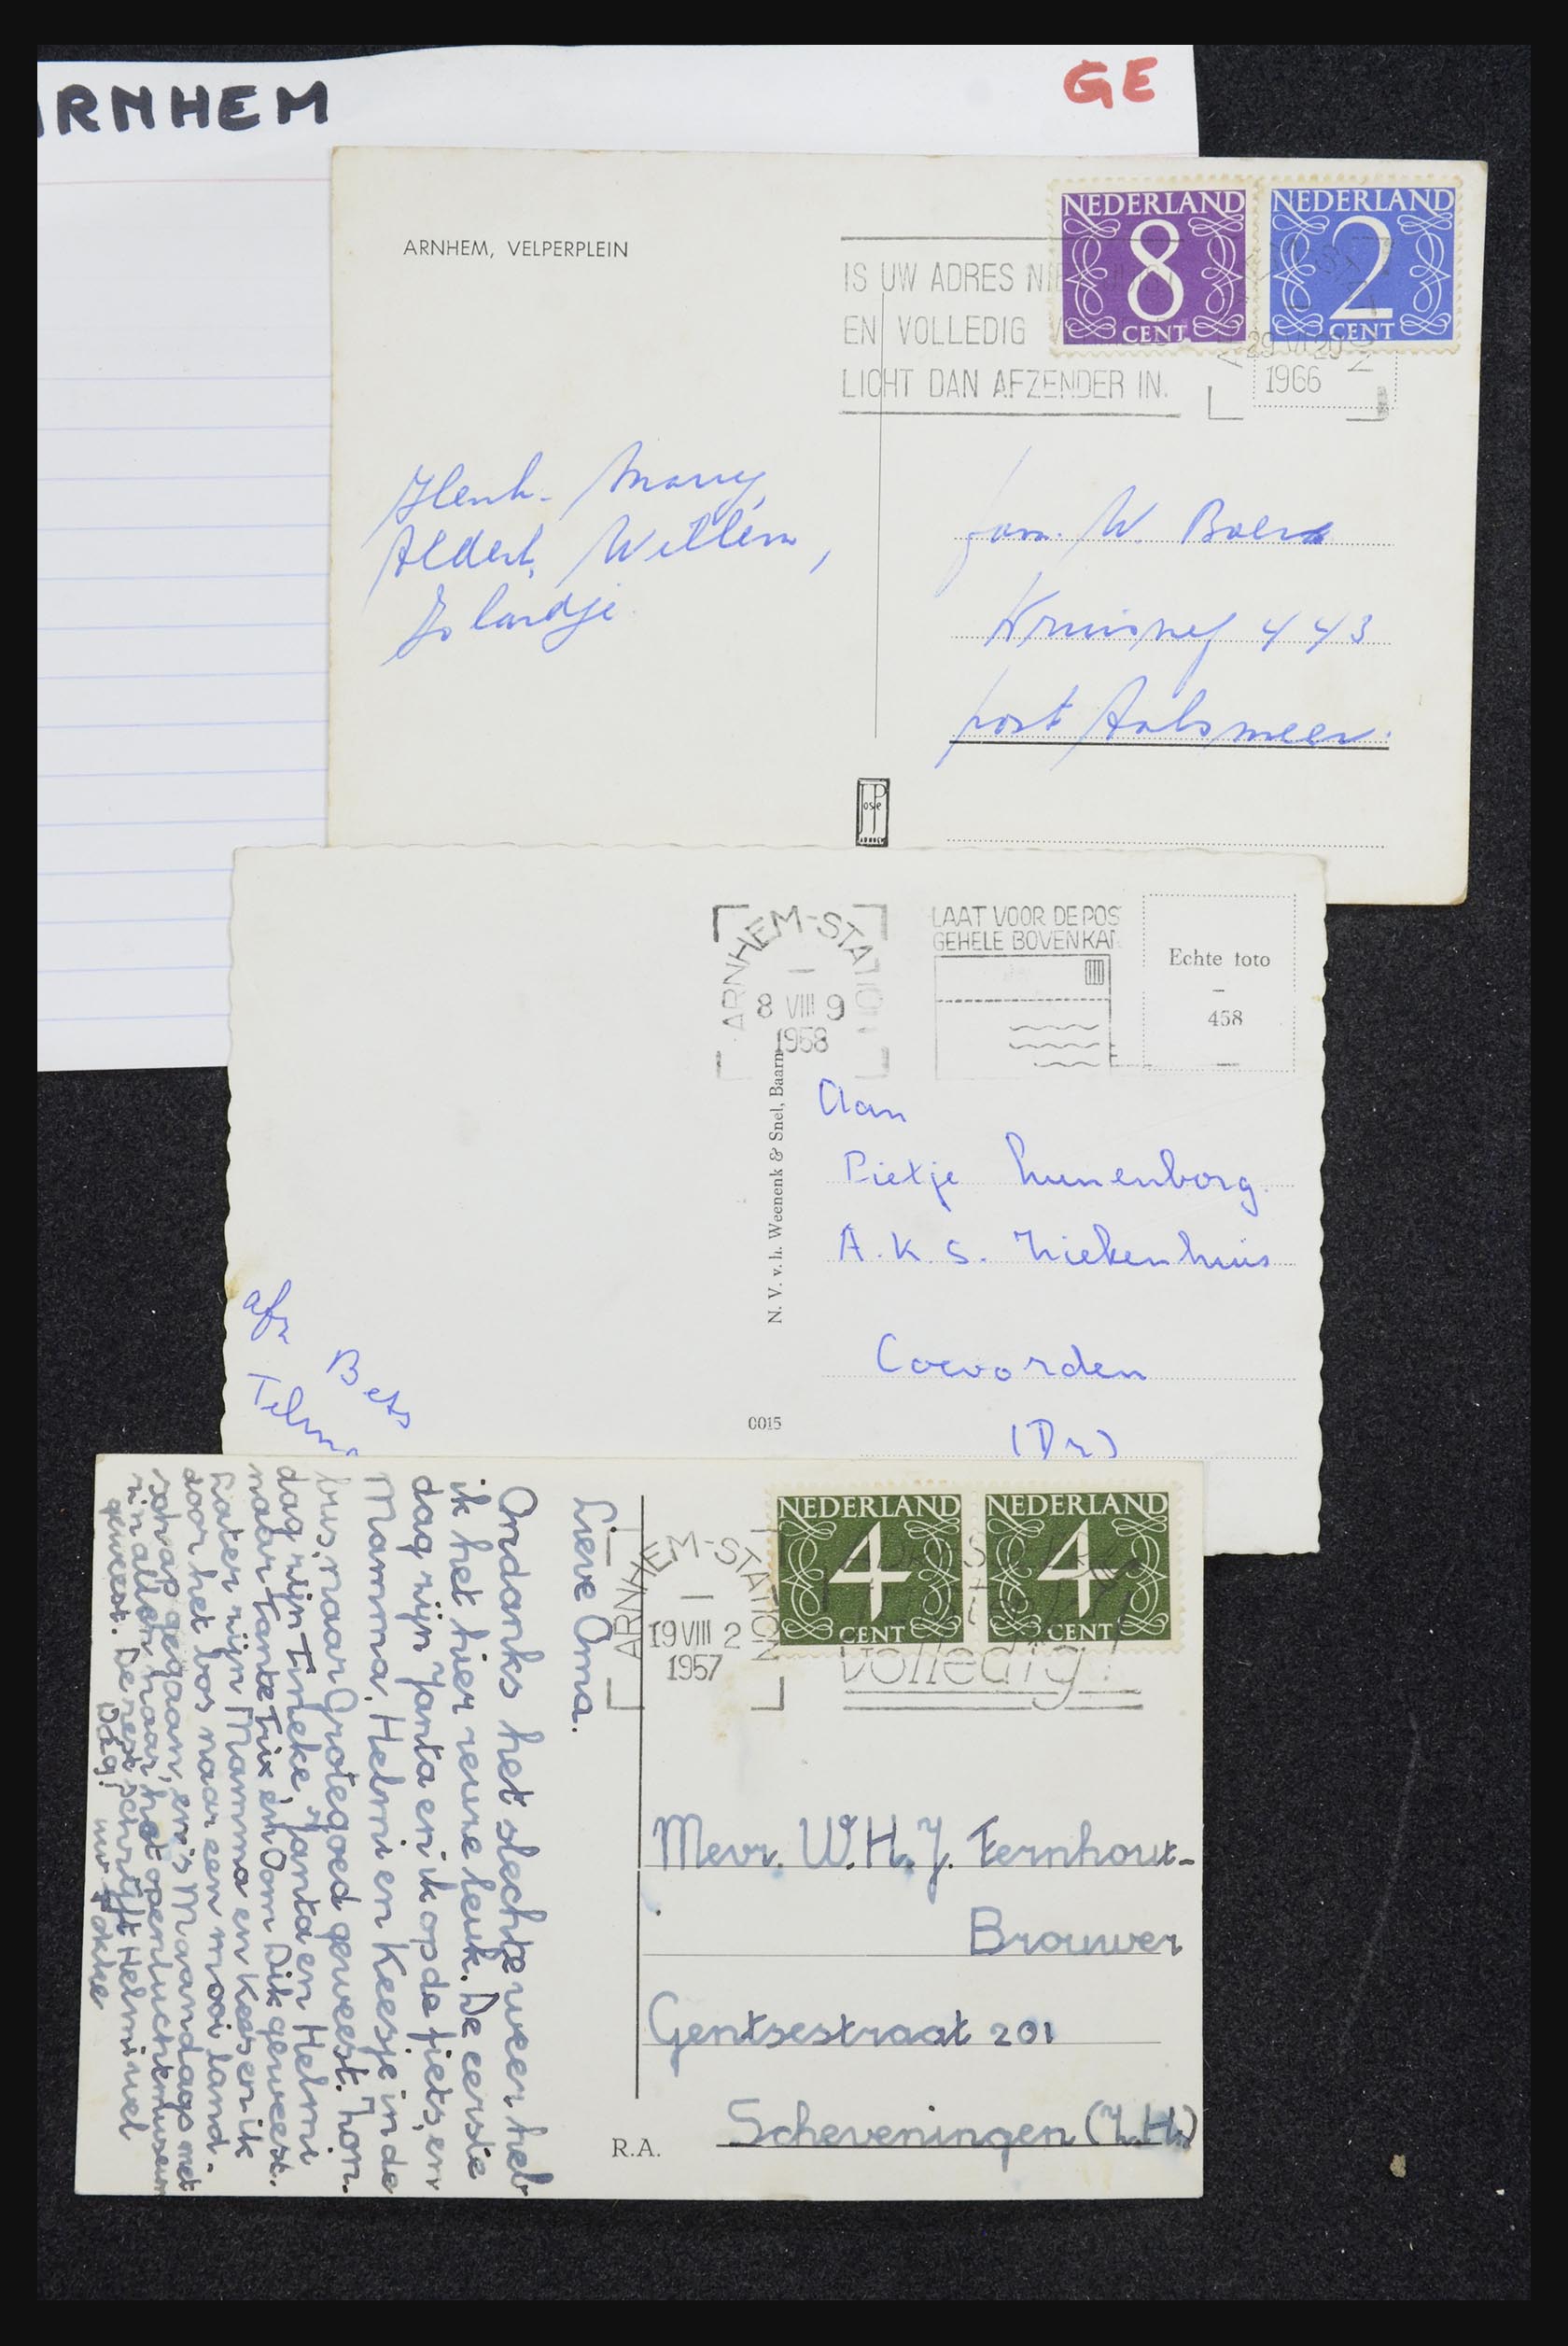 ARNHEM
GE
ARNHEM, VELPERPLEIN
NEDERLAND
8
CENT
NEDERLAND
2
CENT
IS UW ADRES
EN VOLLEDIG
LICHT DAN AFZENDER IN.
29 VI 20
1966
Henk - Marry,
Aldert, Willem,
Jolandje
fam. W. Boer
Kruisweg 443
post Aalsmeer.
ARNHEM-STATION
8 VIII 9
1958
LAAT VOOR DE POS
GEHELE BOVENKAN
Echte foto
458
N. V. v.h. Weenenk & Snel, Baarn
0015
Aan
Pietje Lunenborg.
A.K.S. Ziekenhuis
Coevorden
(Dr)
afz
Bets
NEDERLAND
4
CENT
NEDERLAND
4
CENT
ARNHEM-STATION
19 VIII 2
1957
volledig!
Lieve Oma.
Ondanks het slechte weer heb
ik het hier reuze leuk. De eerste
dag zijn Janta en ik op de fiets, en
Mamma, Helmi en Keesje in de
bus, naar Grotegoed geweest. Zon-
dag zijn Tineke, Janta en Helmi
naar Tante Trix en Oom Dik geweest.
Later zijn Mamma en Kees en ik
door het bos naar een mooi land-
schap gegaan, en 's Maandags met
z'n allen naar het openluchtmuseum
geweest. De rest schrijft Helmi wel
Dag!
Mevr. W.H.J. Fernhout-
Brouwer
Gentsestraat 201
Scheveningen (Z.H.)
R.A.